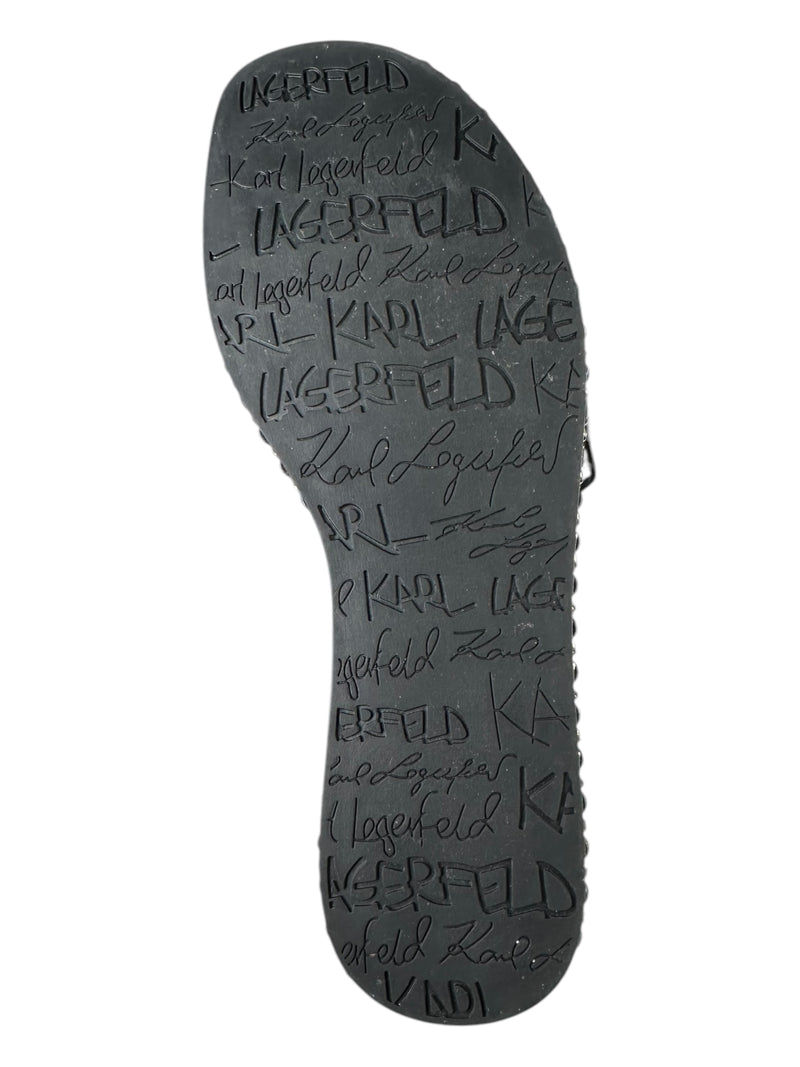 LAGERFELD
Karl Lagerfeld KA
Karl Lagerfeld K
L LAGERFELD
arl lagerfeld Karl Lagerf
ARL KARL LAGE
LAGERFELD KA
Karl Lagerfeld
ARL Karl
Lager
KARL LAGE
agerfeld Karl L
ERFELD KA
arl Lagerfeld KA
l Lagerfeld
AGERFELD
erfeld Karl L
KARL